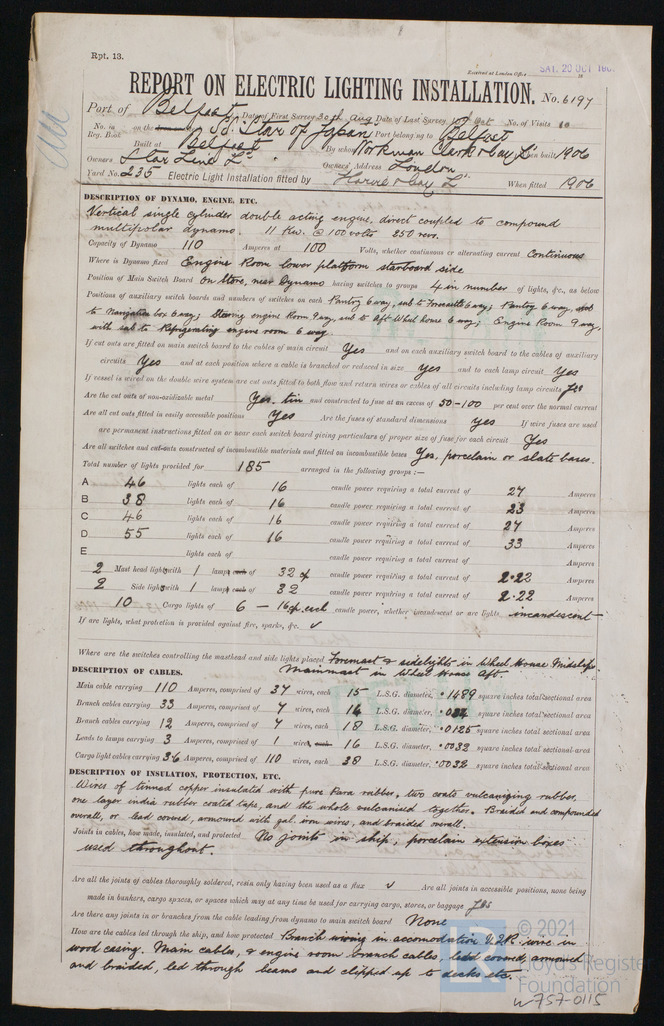 Rpt. 13.
Received at London Office
SAT. 20 OCT 190
REPORT ON ELECTRIC LIGHTING INSTALLATION. No. 6197
Port of Belfast Date of First Survey 30th Aug Date of Last Survey Oct No. of Visits 10
No. in Reg. Book on the S.S. "Star of Japan" Port belonging to Belfast
Built at Belfast By whom Workman Clark & Co Ld When built 1906
Owners Star Line Ld. Owners' Address London
Yard No. 235 Electric Light Installation fitted by Harvie & Co Ld. When fitted 1906
DESCRIPTION OF DYNAMO, ENGINE, ETC.
Vertical single cylinder double acting engine, direct coupled to compound
multipolar dynamo. 11 Kw. @ 100 volts 250 revs.
Capacity of Dynamo 110 Amperes at 100 Volts, whether continuous or alternating current Continuous
Where is Dynamo fixed Engine Room lower platform starboard side
Position of Main Switch Board on Store, near Dynamo having switches to groups 4 in number of lights, &c., as below
Positions of auxiliary switch boards and numbers of switches on each Pantry 6 way, sub to Forecastle 6 way; Pantry 6 way, sub
to Navigation box 6 way; Steering engine Room 9 way, sub to Aft Wheel house 6 way; Engine Room 9 way,
with sub to Refrigerating engine room 6 way.
If cut outs are fitted on main switch board to the cables of main circuit Yes and on each auxiliary switch board to the cables of auxiliary
circuits Yes and at each position where a cable is branched or reduced in size Yes and to each lamp circuit Yes
If vessel is wired on the double wire system are cut outs fitted to both flow and return wires or cables of all circuits including lamp circuits Yes
Are the cut outs of non-oxidizable metal Yes, tin and constructed to fuse at an excess of 50-100 per cent over the normal current
Are all cut outs fitted in easily accessible positions Yes Are the fuses of standard dimensions yes If wire fuses are used
are permanent instructions fitted on or near each switch board giving particulars of proper size of fuse for each circuit Yes
Are all switches and cut-outs constructed of incombustible materials and fitted on incombustible bases Yes, porcelain or slate bases.
Total number of lights provided for 185 arranged in the following groups :—
A 46 lights each of 16 candle power requiring a total current of 27 Amperes
B 38 lights each of 16 candle power requiring a total current of 23 Amperes
C 46 lights each of 16 candle power requiring a total current of 27 Amperes
D 55 lights each of 16 candle power requiring a total current of 33 Amperes
E lights each of candle power requiring a total current of Amperes
2 Mast head lights with 1 lamp each of 32 cp candle power requiring a total current of 2.22 Amperes
2 Side lights with 1 lamp each of 32 candle power requiring a total current of 2.22 Amperes
10 Cargo lights of 6 — 16 cp. each candle power, whether incandescent or arc lights incandescent
If arc lights, what protection is provided against fire, sparks, &c. ✓
Where are the switches controlling the masthead and side lights placed Foremast & sidelights in Wheel House Midships.
Mainmast in Wheel House Aft.
DESCRIPTION OF CABLES.
Main cable carrying 110 Amperes, comprised of 37 wires, each 15 L.S.G. diameter, .1489 square inches total sectional area
Branch cables carrying 33 Amperes, comprised of 7 wires, each 14 L.S.G. diameter, square inches total sectional area
Branch cables carrying 12 Amperes, comprised of 7 wires, each 18 L.S.G. diameter, .0125 square inches total sectional area
Leads to lamps carrying 3 Amperes, comprised of 1 wires, each 16 L.S.G. diameter, .0032 square inches total sectional area
Cargo light cables carrying 3.6 Amperes, comprised of 110 wires, each 38 L.S.G. diameter, .0032 square inches total sectional area
DESCRIPTION OF INSULATION, PROTECTION, ETC.
Wires of tinned copper insulated with pure Para rubber, two coats vulcanizing rubber,
one layer india rubber coated tape, and the whole vulcanised together. Braided and compounded
overall, or lead covered, armoured with gal. iron wires, and braided overall.
Joints in cables, how made, insulated, and protected No joints in ship, porcelain extension boxes
used throughout.
Are all the joints of cables thoroughly soldered, resin only having been used as a flux ✓ Are all joints in accessible positions, none being
made in bunkers, cargo spaces, or spaces which may at any time be used for carrying cargo, stores, or baggage Yes
Are there any joints in or branches from the cable leading from dynamo to main switch board None
How are the cables led through the ship, and how protected Branch wiring in accomodation V.I.R. wire in
wood casing. Main cables, & engine room branch cables, lead covered, armoured
and braided, led through beams and clipped up to decks etc.
© 2021
LR
Lloyd's Register
Foundation
W757-0115